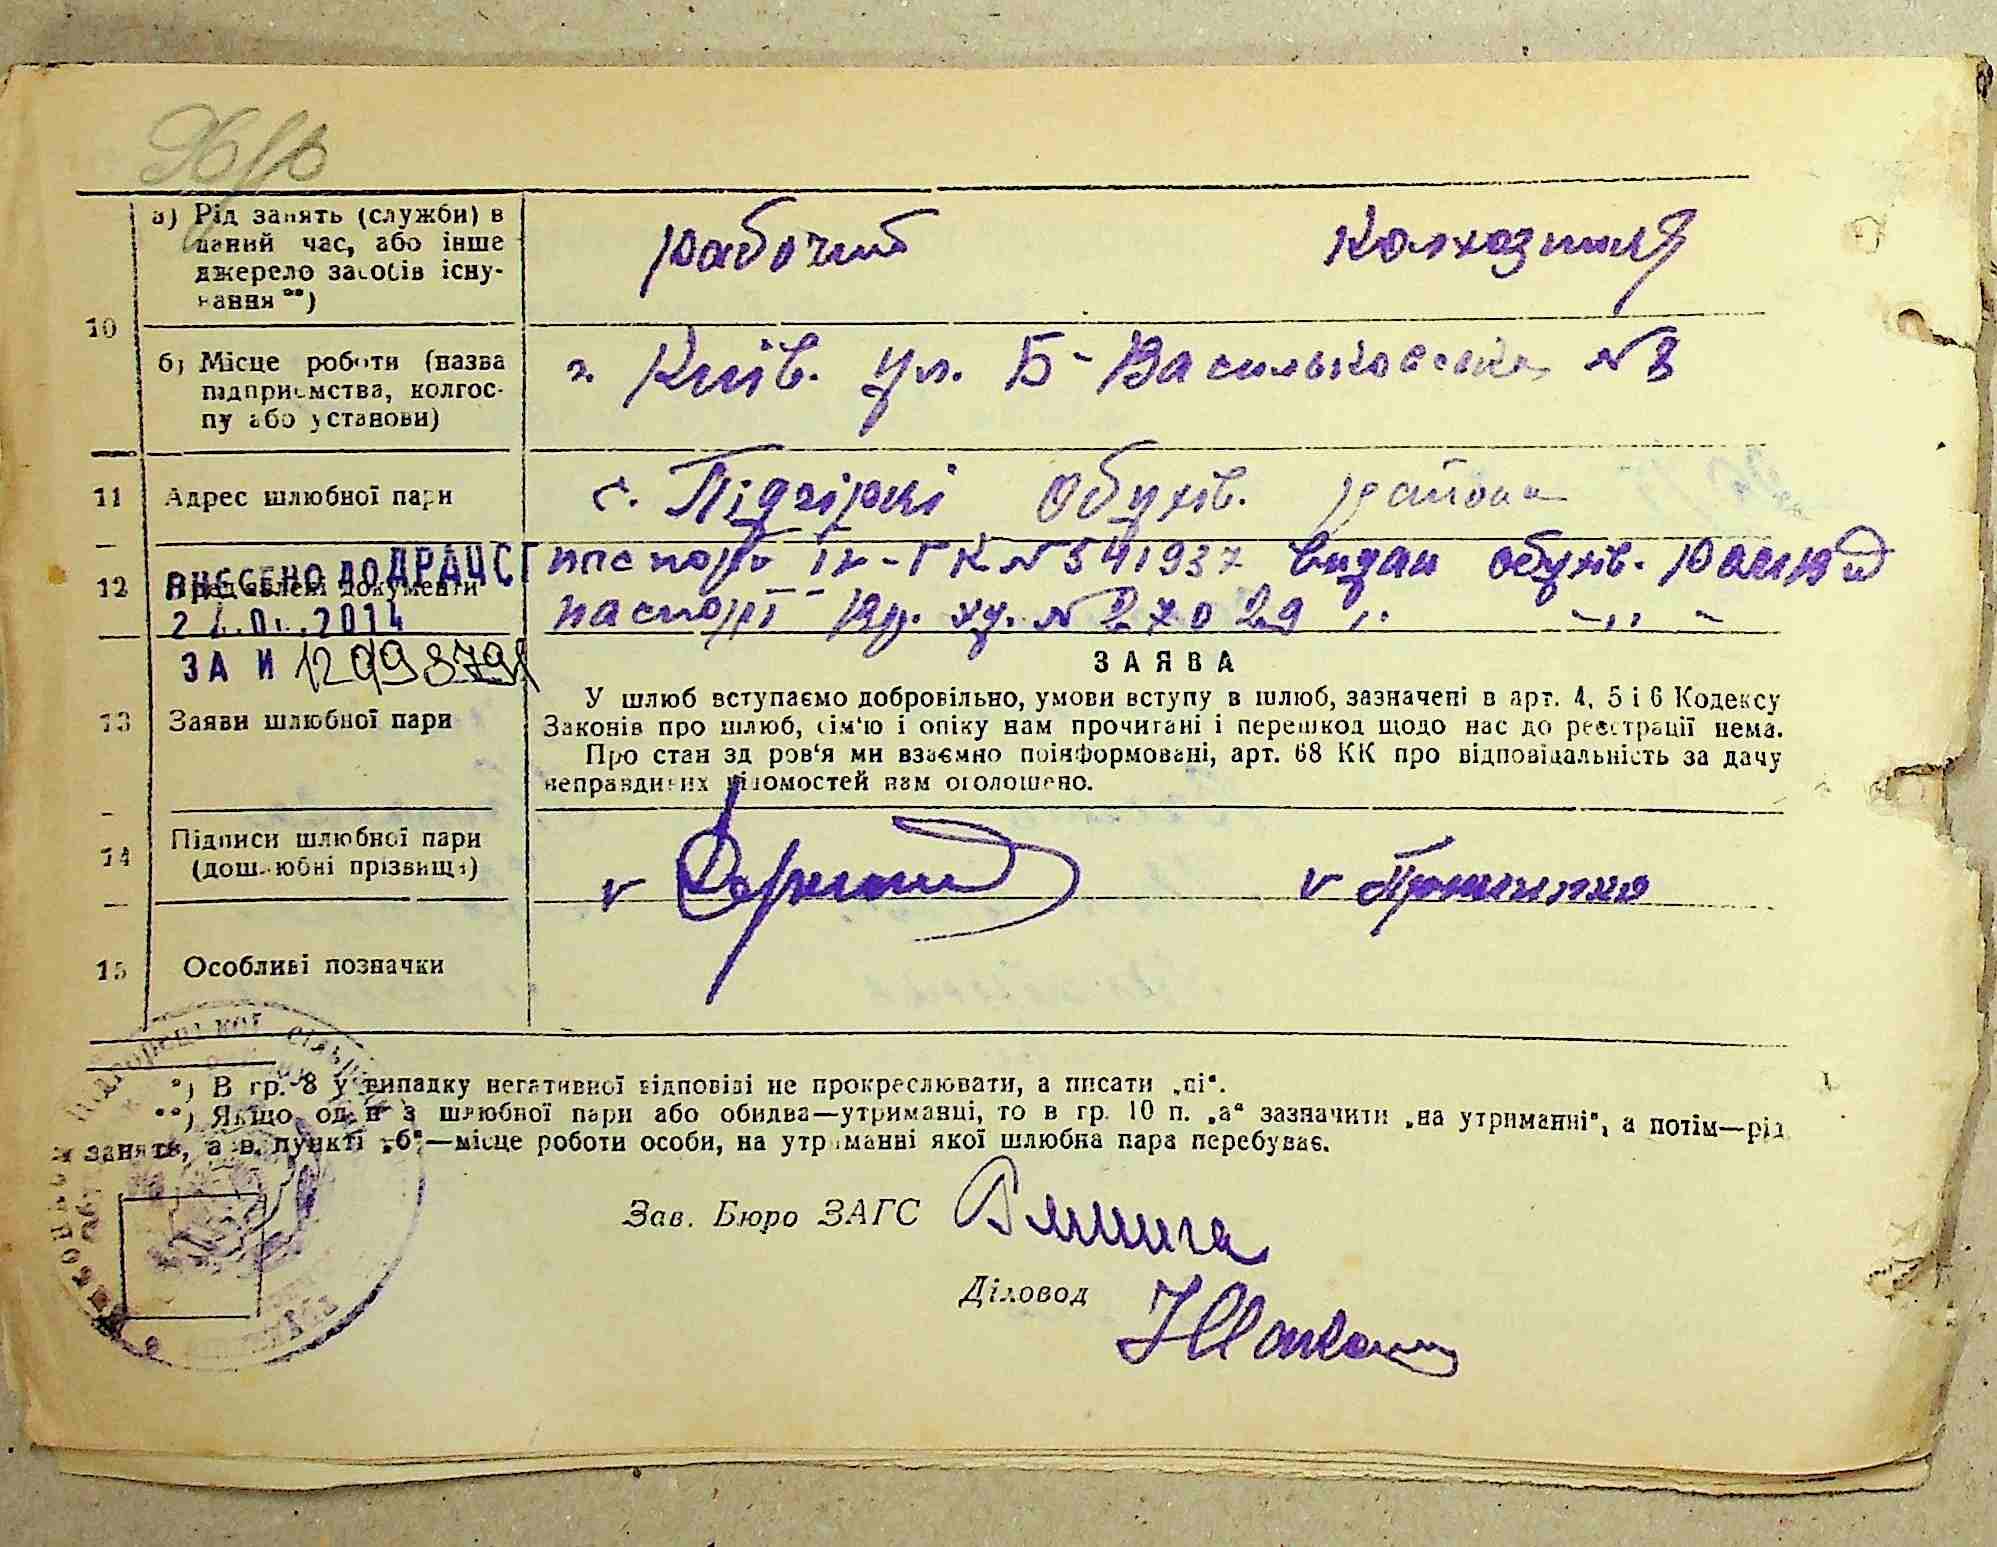 10
а) Рід занять (служби) в
даний час, або інше
джерело засобів існу-
вання **)
рабочий колхозниця
б) Місце роботи (назва
підприємства, колгос-
пу або установи)
г. Київ. ул. Б-Васильковска №8
11
Адрес шлюбної пари
с. Підгірці Обухів. района
12
Представлені документи
ВНЕСЕНО ДО ДРАЦСГ
2014
ЗА И 12099879
паспорт ІV-ГК №541937 видан обухів.
паспорт №27029 " - " -
13
Заяви шлюбної пари
ЗАЯВА
У шлюб вступаємо добровільно, умови вступу в шлюб, зазначені в арт. 4, 5 і 6 Кодексу
Законів про шлюб, сім'ю і опіку нам прочитані і перешкод щодо нас до реєстрації нема.
Про стан здоров'я ми взаємно поінформовані, арт. 68 КК про відповідальність за дачу
неправдивих відомостей нам оголошено.
14
Підписи шлюбної пари
(дошлюбні прізвища)
15
Особливі позначки
*) В гр. 8 у випадку негативної відповіді не прокреслювати, а писати „ні“.
**) Якщо один з шлюбної пари або обидва—утриманці, то в гр. 10 п. „а“ зазначити „на утриманні“, а потім—рід
занять, а в пункті „б“—місце роботи особи, на утриманні якої шлюбна пара перебуває.
Зав. Бюро ЗАГС
Діловод